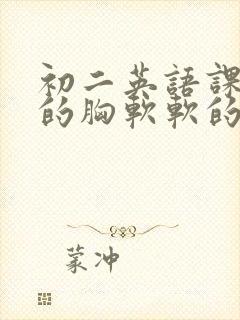 初二英語課
的胸軟軟的
蒙冲